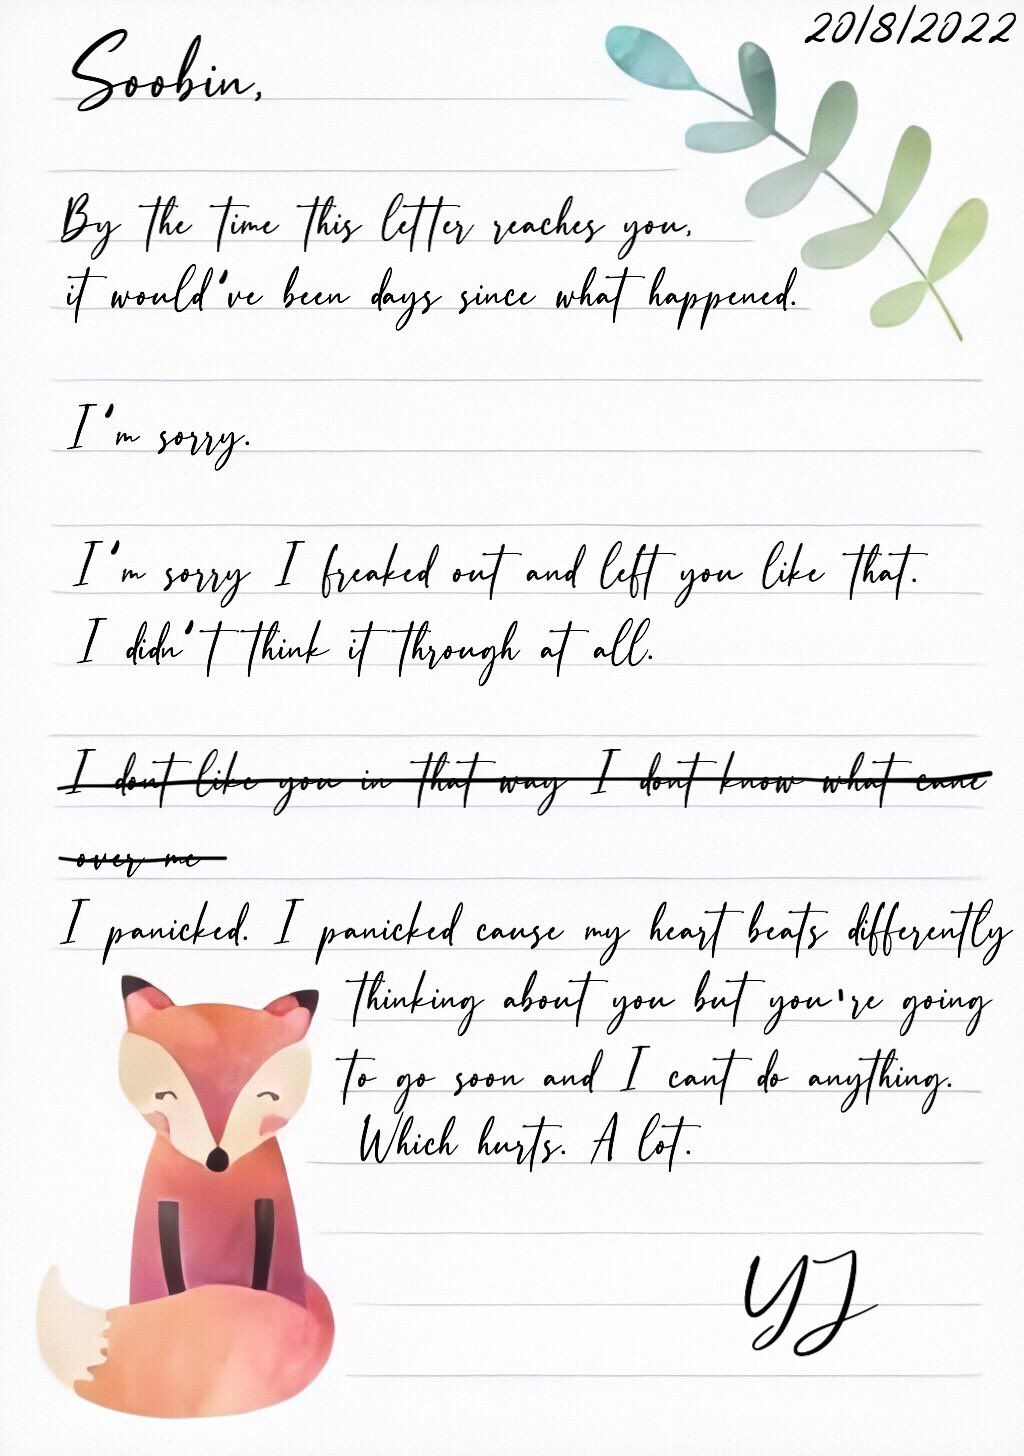 20/8/2022
Soobin,
By the time this letter reaches you,
it would've been days since what happened.
I'm sorry.
I'm sorry I freaked out and left you like that.
I didn't think it through at all.
I dont like you in that way I dont know what came
over me
I panicked. I panicked cause my heart beats differently
thinking about you but you're going
to go soon and I cant do anything.
Which hurts. A lot.
YJ